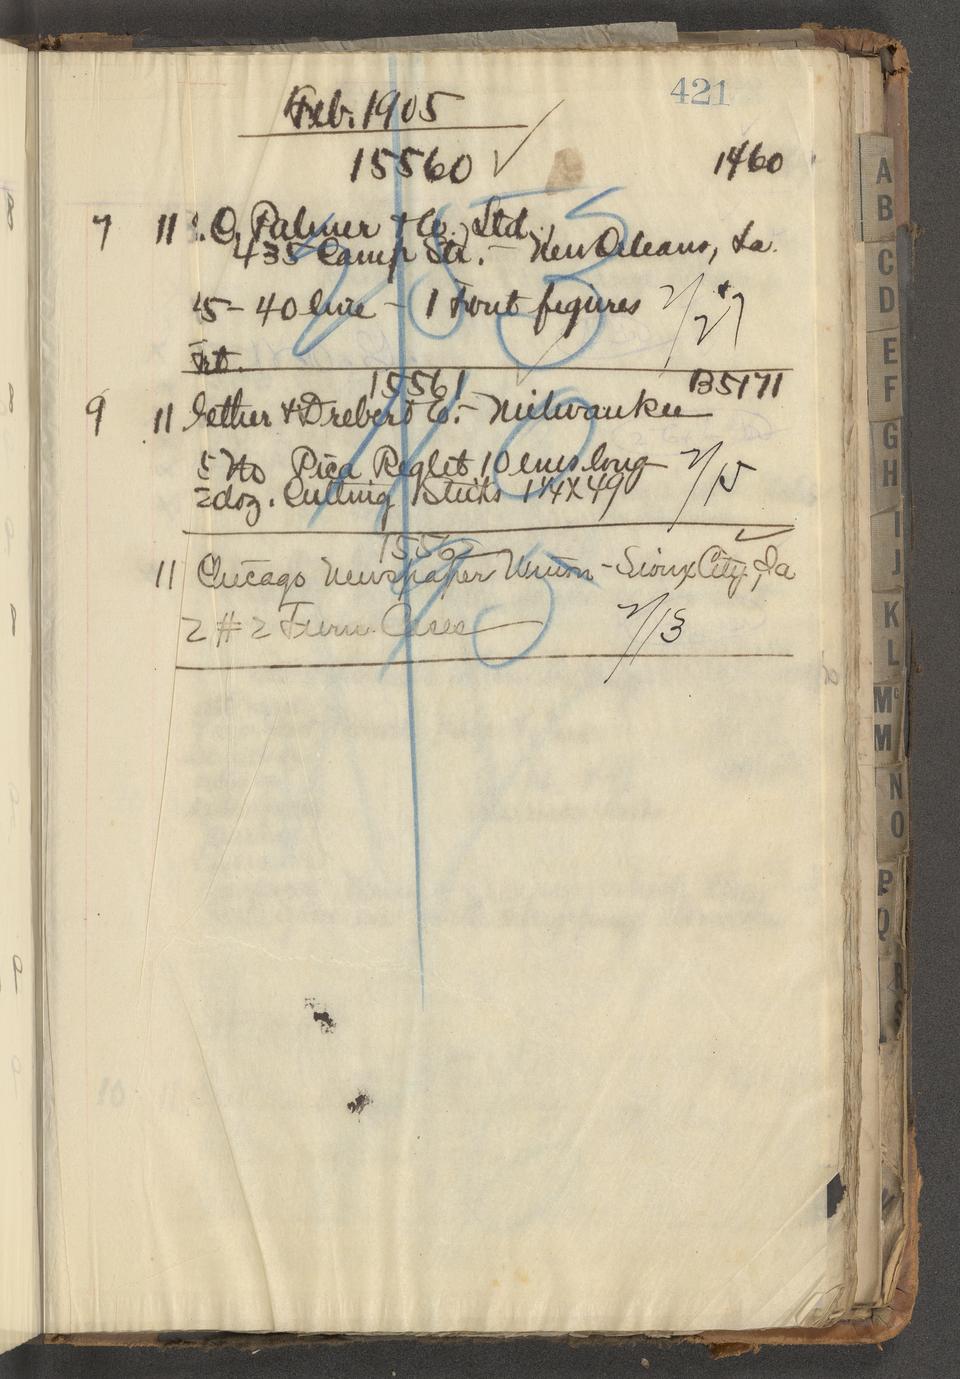 421
Feb. 1905
15560 ✓ 1460
7 11 O. Palmer & Co. Ltd.
435 Camp Str. - New Orleans, La.
- 40 line - 1 font figures 2/27
Frt.
15561 B5171
9 11 Gether & Drebert Co. - Milwaukee
5 Pica Reglet 10 ems long 2/15
2 doz. Cutting Sticks 49
1556
11 Chicago Newspaper Union - Sioux City, Ia
2 # 2 Furn. Cases 2/13
A
B
C
D
E
F
G
H
I
J
K
L
Mc
M
N
O
P
Q
R
S